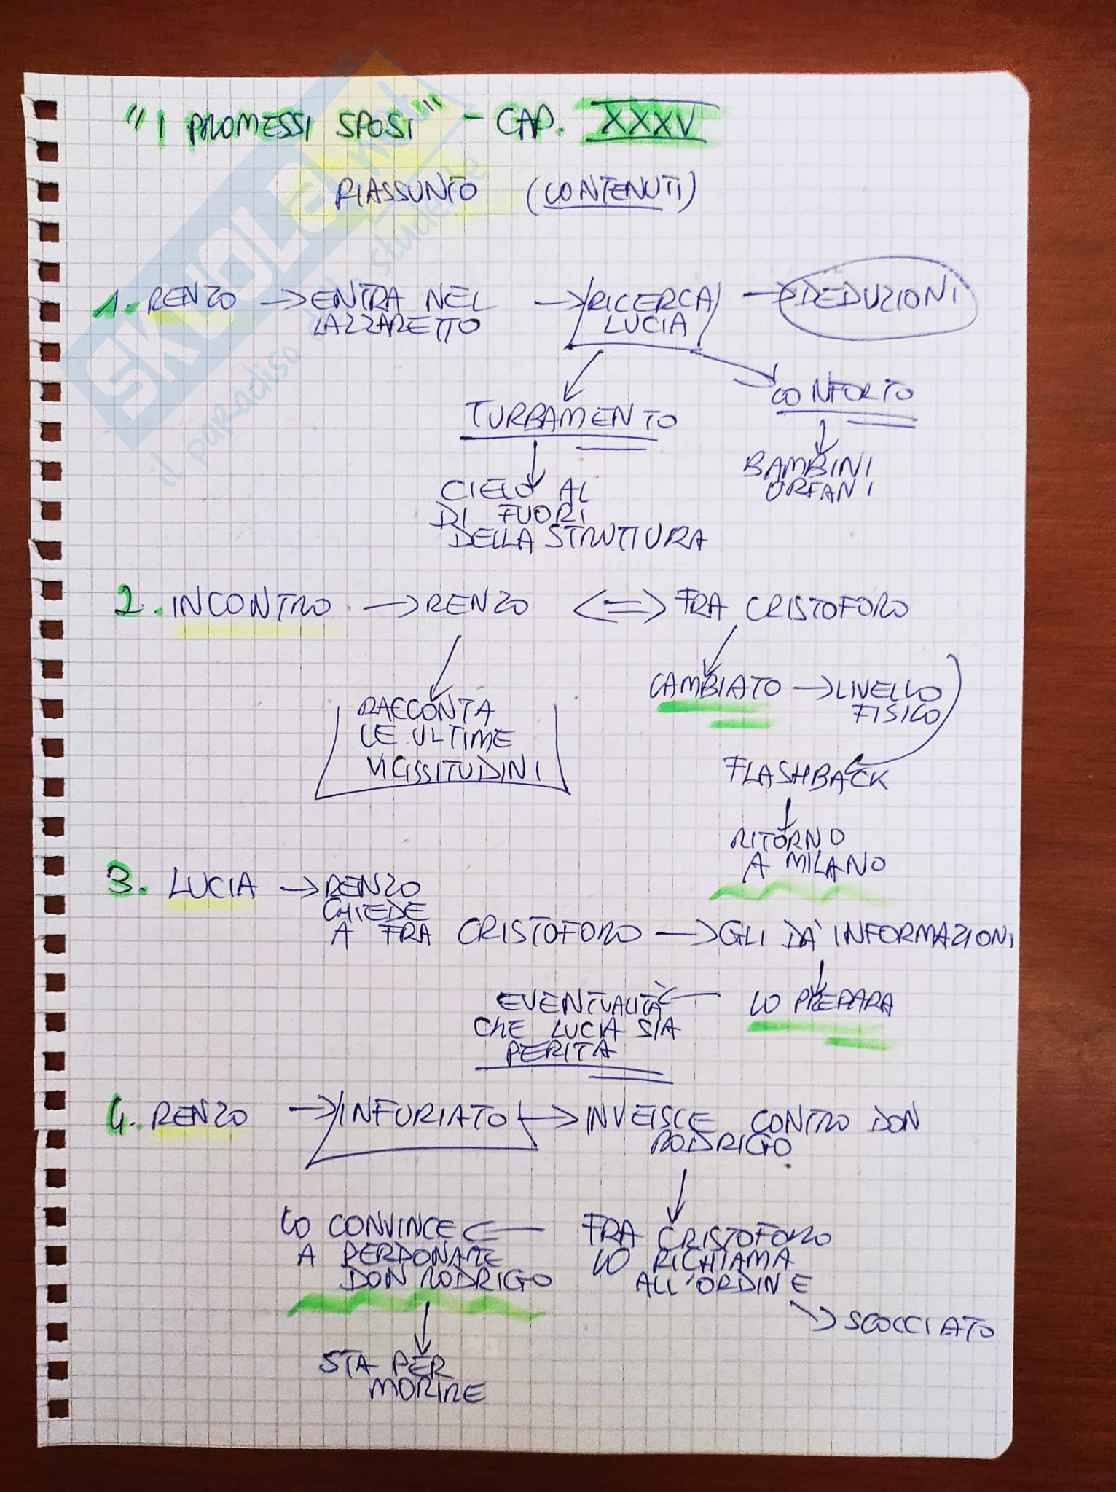 "I PROMESSI SPOSI" - CAP. XXXV
RIASSUNTO (CONTENUTI)
1. RENZO → ENTRA NEL LAZZARETTO → RICERCA LUCIA → DEDUZIONI
TURBAMENTO
CONFORTO
BAMBINI
ORFANI
CIELO AL
DI FUORI
DELLA STRUTTURA
2. INCONTRO → RENZO <=> FRA CRISTOFORO
CAMBIATO → LIVELLO
FISICO
RACCONTA
LE ULTIME
VICISSITUDINI
FLASHBACK
RITORNO
A MILANO
3. LUCIA → RENZO
CHIEDE
A FRA CRISTOFORO → GLI DA' INFORMAZIONI
LO PREPARA
EVENTUALITÀ
CHE LUCIA SIA
PERITA
4. RENZO → INFURIATO → INVEISCE CONTRO DON
RODRIGO
FRA CRISTOFORO
LO RICHIAMA
ALL'ORDINE
SCOCCIATO
LO CONVINCE
A PERDONARE
DON RODRIGO
STA PER
MORIRE
SKUOLA.net
il paradiso dello studente